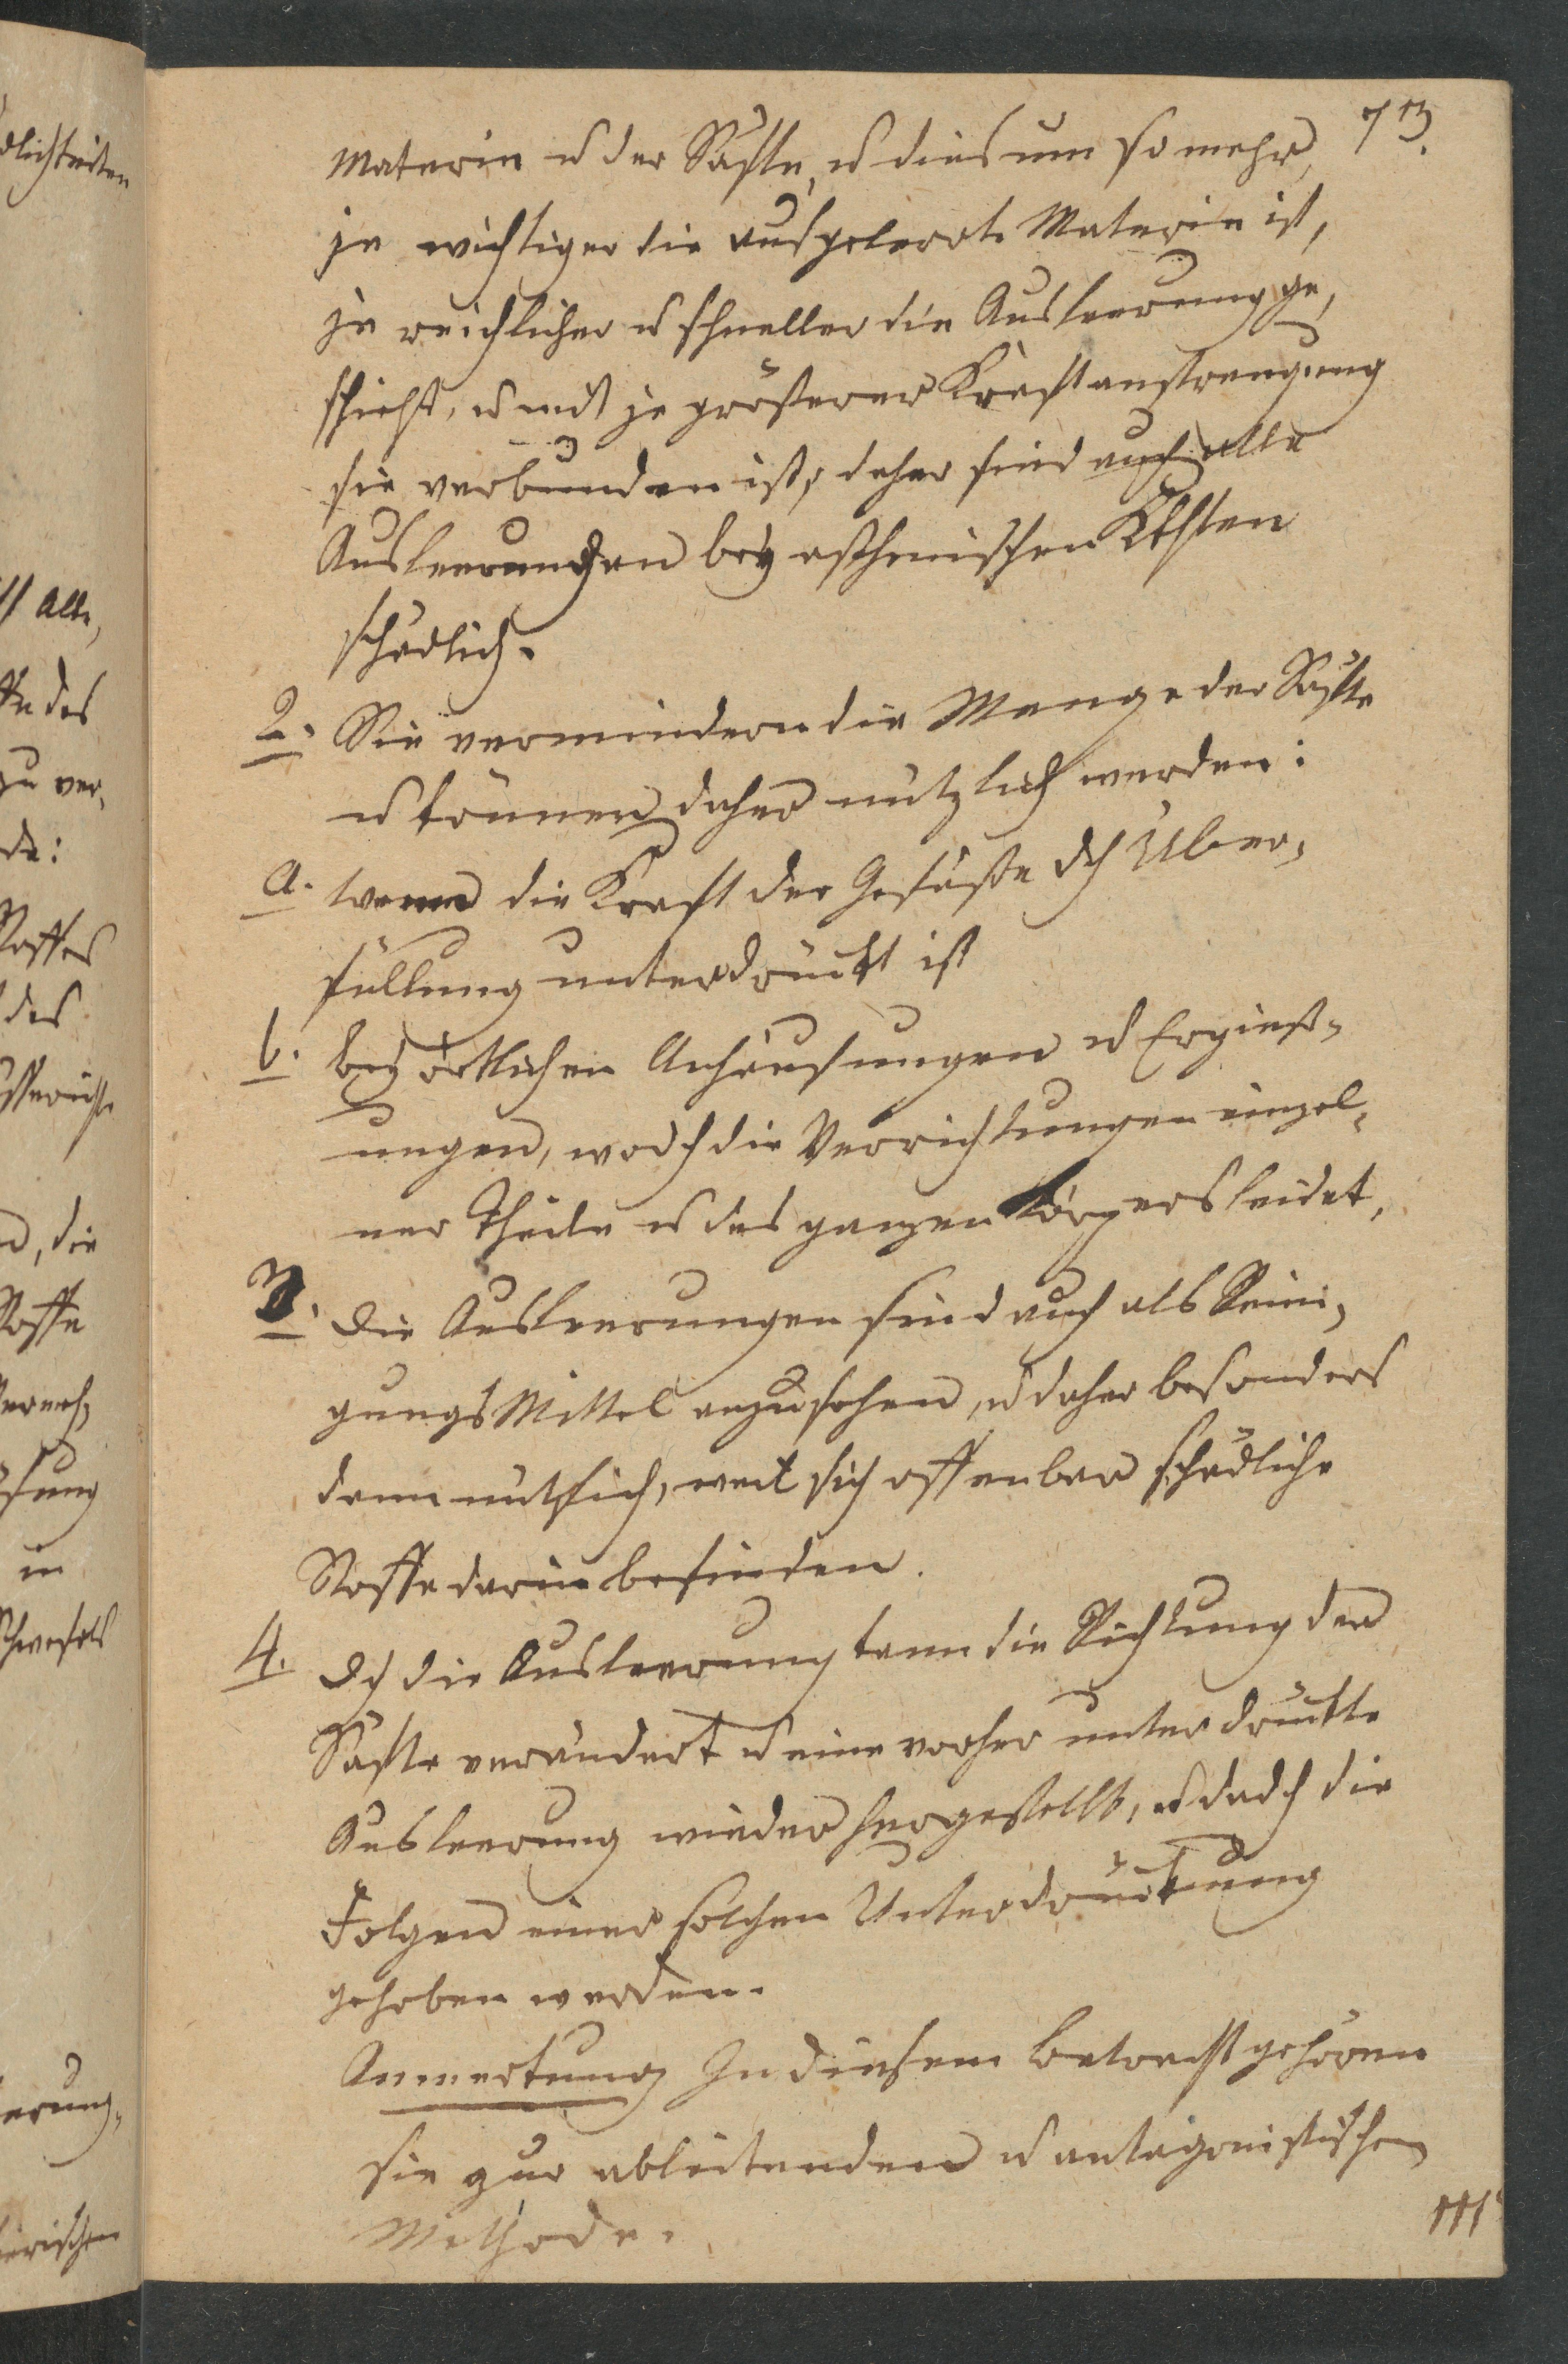 73.
Materie u der Säfte, u dies um so mehr,
je wichtiger die ausgeleerte Materie ist,
je reichlicher u schneller die Ausleerung ge,
schieht, u mit je größerer Kraftanstrengung
sie verbunden ist, daher sind auch alle
Ausleerungen bey asthenischen Kkhten
schädlich.
2. Sie vermindern die Menge der Säfte
u können daher nützlich werden:
a. wenn die Kraft der Gefäße dh Uber,
füllung unterdrückt ist
b. bey örtlichen Anhäufungen u Ergieß,
ungen, wodh die Verrichtungen einzel,
ner Theile u des ganzen Körpers leidet,
3. Die Ausleerungen sind auch als Reini,
gungs Mittel anzusehen, u daher besonders
dann nützlich, weil sich offenbar schädliche
Stoffe darin befinden.
4. Dh die Ausleerung kann die Richtung der
Säfte verändert u eine vorher unterdrückte
Ausleerung wieder hergestellt, u dadh die
Folgen einer solchen Unterdrückung
gehoben werden.
Anmerkung In diesem Betracht gehören
sie zur ableitenden u antagonistischen
Methode.
dlichkeiten
Alle,
des
zu ver,
de:
Stoffes
des
d, die
Stoffe
in
Schwefels
erung,